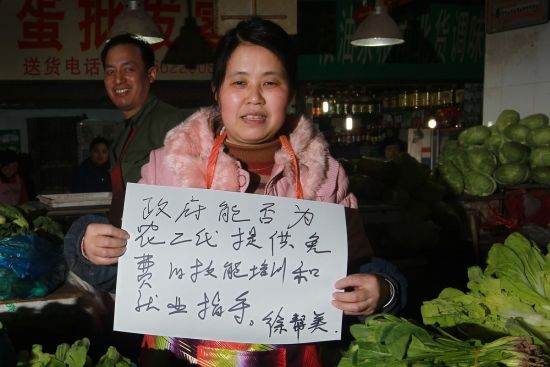 蛋批发
送货电话
货调味
政府能否为
农二代提供免
费的技能培训和
就业指导。徐帮美.